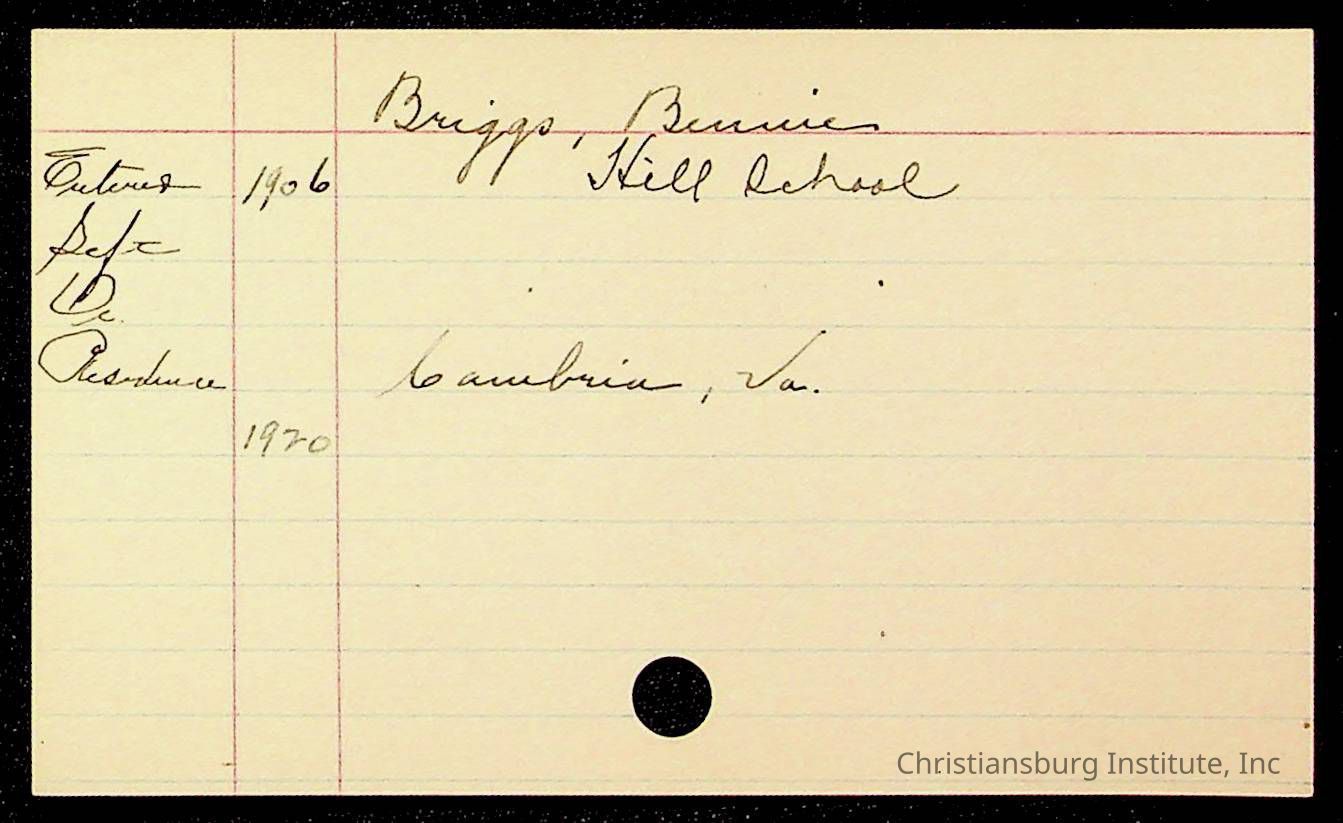 Briggs, Bennie
Entered 1906 Hill School
Left
D.
Residence Cambria, Va.
1920
Christiansburg Institute, Inc